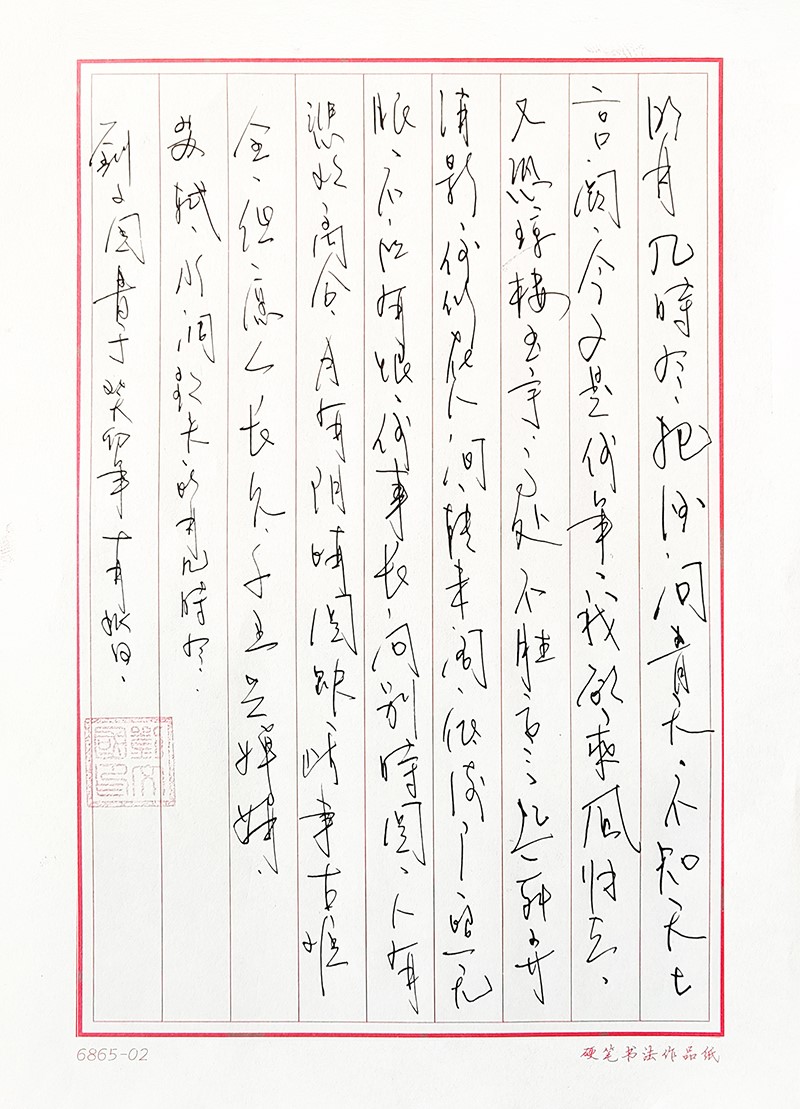 明月几時有把酒问青天不知天上
宫阙今夕是何年我欲乘風归去
又恐琼楼玉宇高处不胜寒起舞弄
清影何似在人间转朱阁低绮户照无
眠不应有恨何事长向别時圆人有
悲欢离合月有阴晴圆缺此事古难
全但愿人长久千里共婵娟
苏轼水调歌头明月几時有
劉文国書于癸卯年十月秋日
劉文國印
6865-02
硬笔书法作品纸